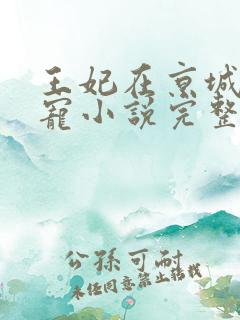 王妃在京城
寵小說完整
公孫可耐
未經同意禁止轉載